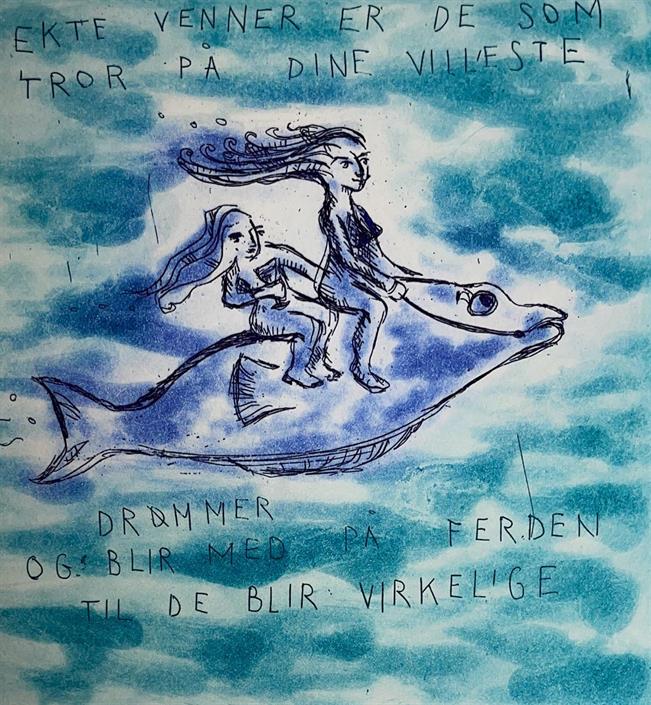 EKTE VENNER ER DE SOM
TROR PÅ DINE VILLESTE
DRØMMER
OG BLIR MED PÅ FERDEN
TIL DE BLIR VIRKELIGE